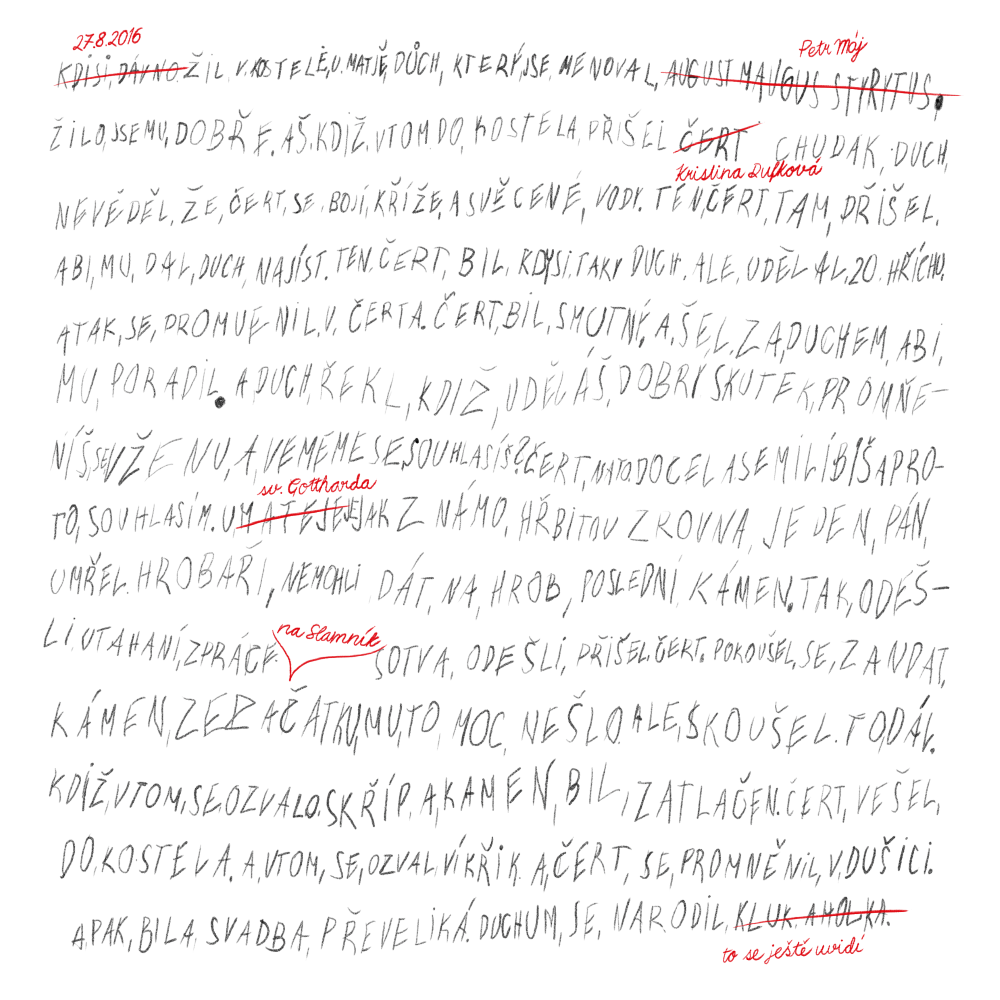 27.8.2016
Petr Máj
KDISI, DÁVNO. ŽIL. V. KOSTELE, U. MATJĚ, DŮCH, KTERÝ, JSE, MENOVAL, AUGUST MAUGUS STYRYTUS.
ŽILO, JSEMU, DOBŘE. AŠ. KDIŽ. VTOM DO, KOSTELA, PŘIŠEL ČERT CHUDÁK, DUCH,
Kristina Dufková
NEVĚDĚL, ŽE, ČERT, SE, BOJÍ, KŘÍŽE, A SVĚCENÉ, VODY. TEN, ČERT, TAM, PŘIŠEL.
ABI, MU, DAL, DUCH, NAJÍST. TEN. ČERT, BIL. KDYSI. TAKY DUCH. ALE, UDĚLAL, 20. HŘÍCHU.
A TAK, SE, PROMUENIL, V, ČERTA. ČERT, BIL, SMUTNÉ, A, ŠEL, ZA, DUCHEM, ABI,
MU, PORADIL. A DUCH, ŘEKL, KDIŽ, UDĚLÁŠ, DOBRY SKUTEK, PROMNE-
NÍŠ, SE, VŽENU, A, VEMEME SE, SOUHLASÍŠ? ČERT, NATO, DOCELA SE MI LÍBÍŠ A PRO-
sv. Gottharda
TO, SOUHLASÍM. U MATEJE, JEJAK ZNÁMO, HŘBITOV ZROVNA, JEDEN, PÁN,
UMŘEL. HROBAŘI, NEMOHLI DÁT, NA, HROB, POSLEDNÍ KÁMEN. TAK, ODEŠ-
na Slamník
LI, UTAHANÍ, Z PRÁCE. SOTVA, ODEŠLI, PŘIŠEL, ČERT. POKOUŠEL, SE, ZANDAT,
KÁMEN, ZE ZAČÁTKU, MU, TO MOC, NEŠLO ALE, SKOUŠEL. TO, DÁL.
KDIŽ, VTOM, SE, OZVALO, SKŘÍP, A, KAMEN, BIL, ZATLAČEN. ČERT, VEŠEL,
DO, KOSTELA. A, VTOM, SE, OZVAL, VÍKŘIK. A, ČERT, SE, PROMNĚNIL, V, DUŠICI.
A PAK, BILA, SVADBA, PŘEVELIKÁ. DUCHUM, SE, NARODIL, KLUK. A HOLKA.
to se ještě uvidí